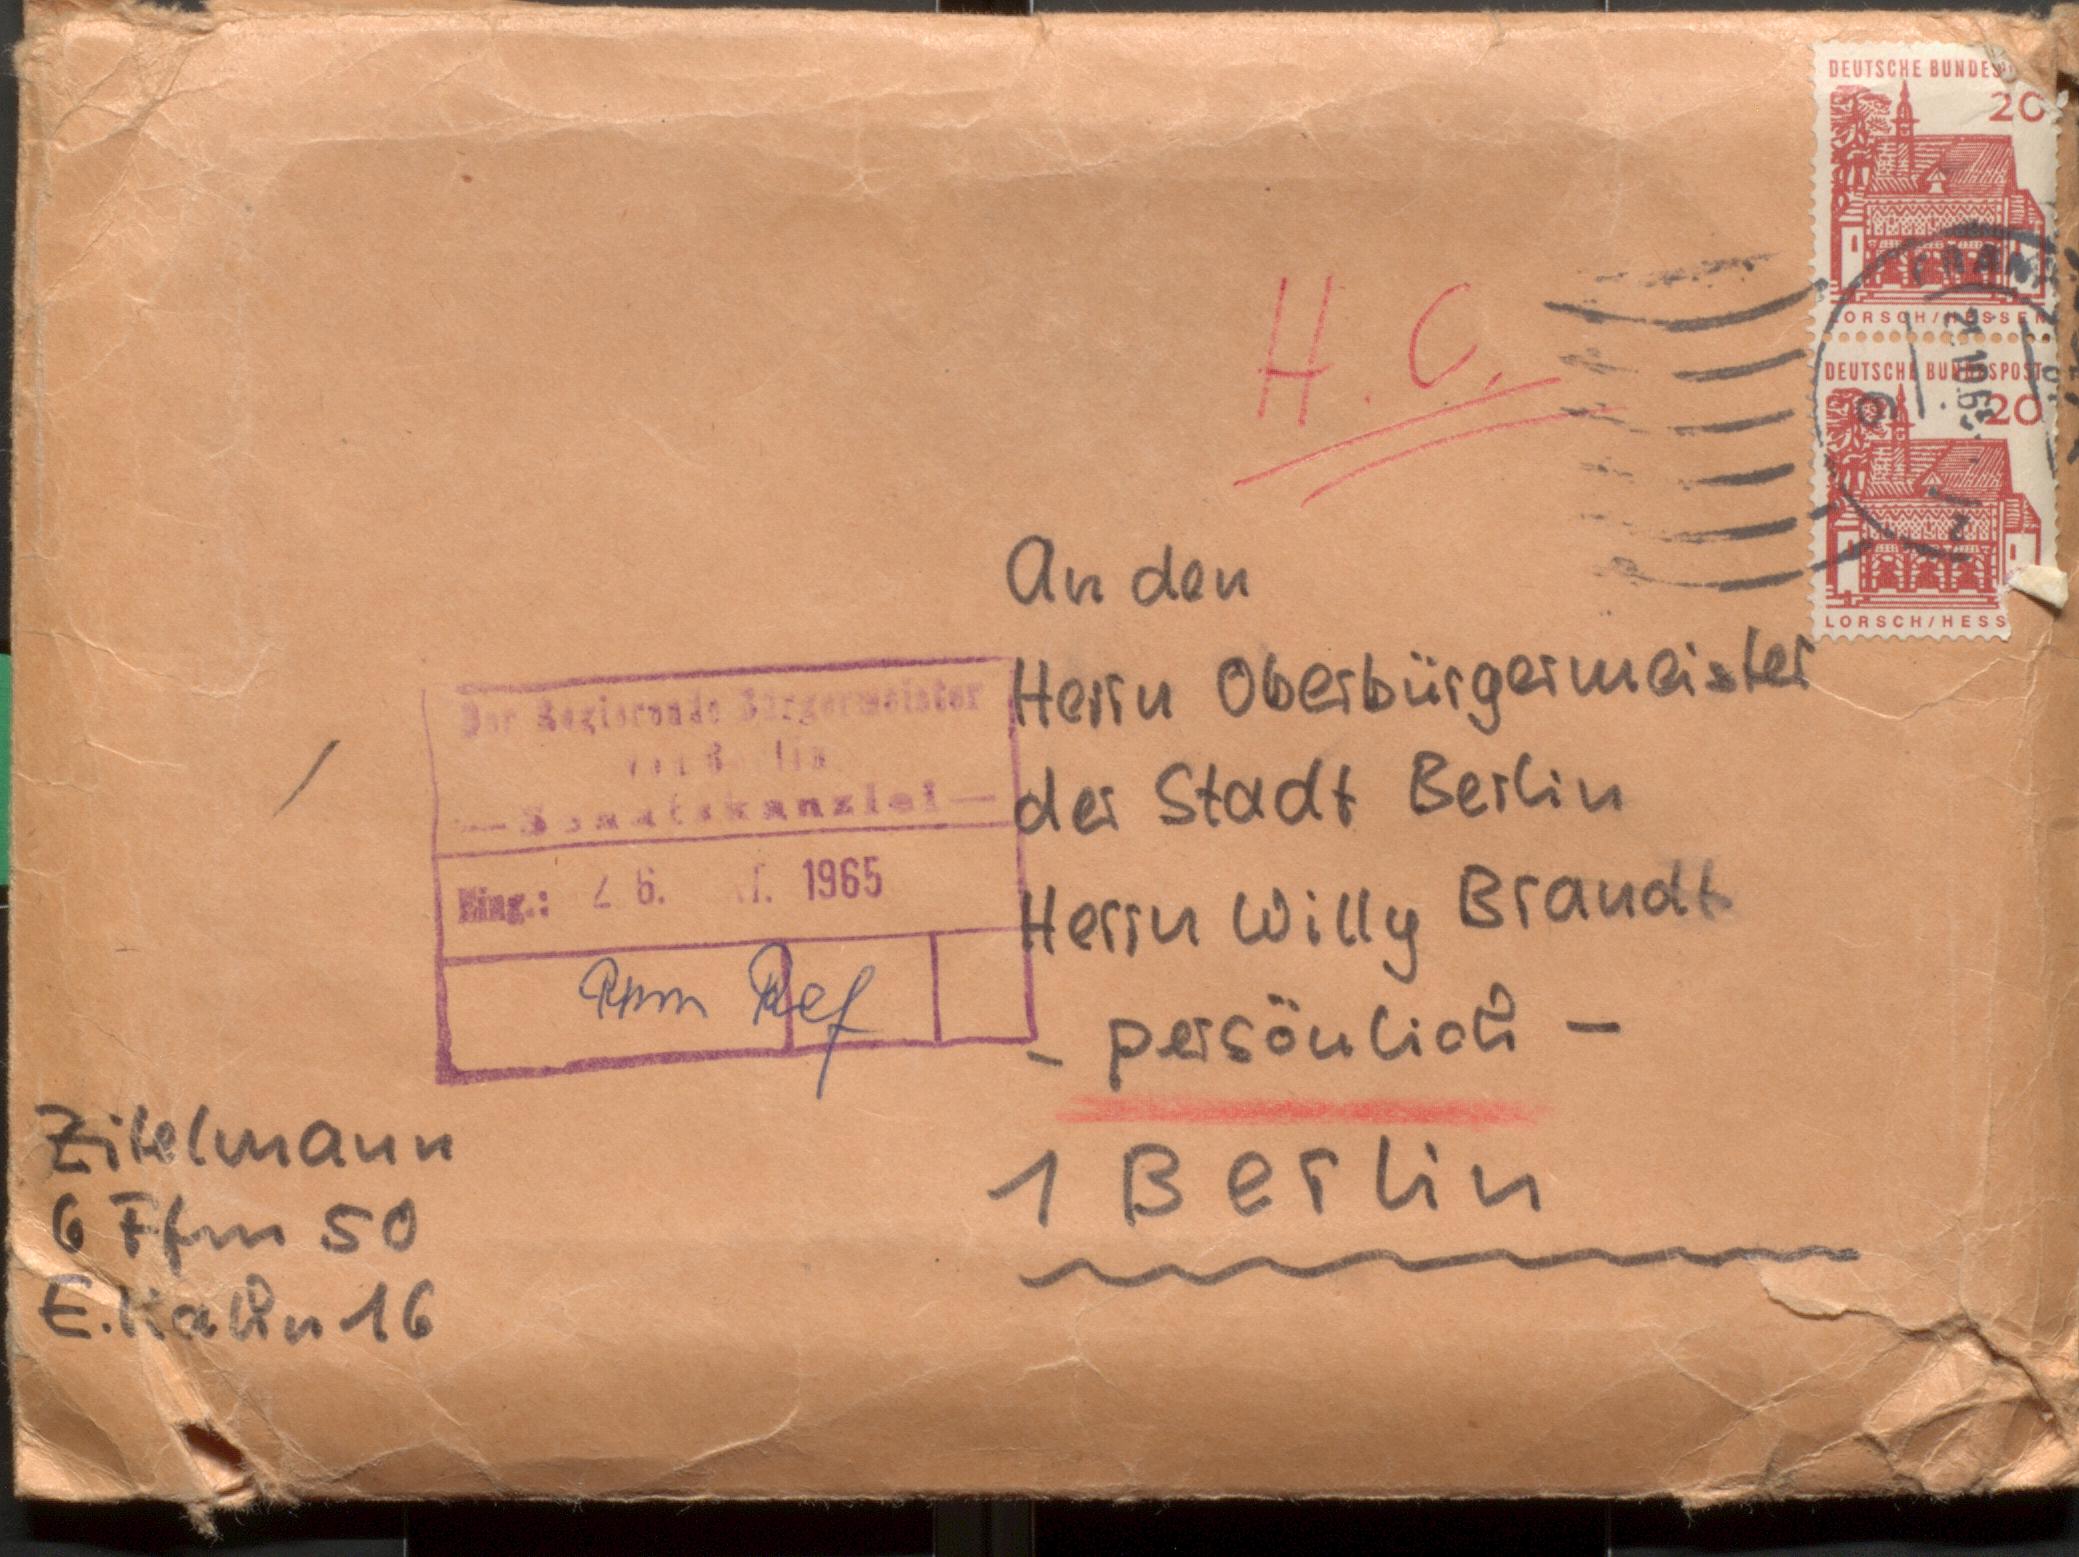 DEUTSCHE BUNDESP
20
LORSCH/HESSEN
DEUTSCHE BUNDESPOST
20
LORSCH/HESS
H. C.
An den
Herrn Oberbürgermeister
der Stadt Berlin
Herrn Willy Brandt
- persönlich -
1 Berlin
Der Regierende Bürgermeister
von Berlin
— Senatskanzlei —
Eing.: 26. 1965
Ref
Zitelmann
6 Ffm 50
E. Kahn 16